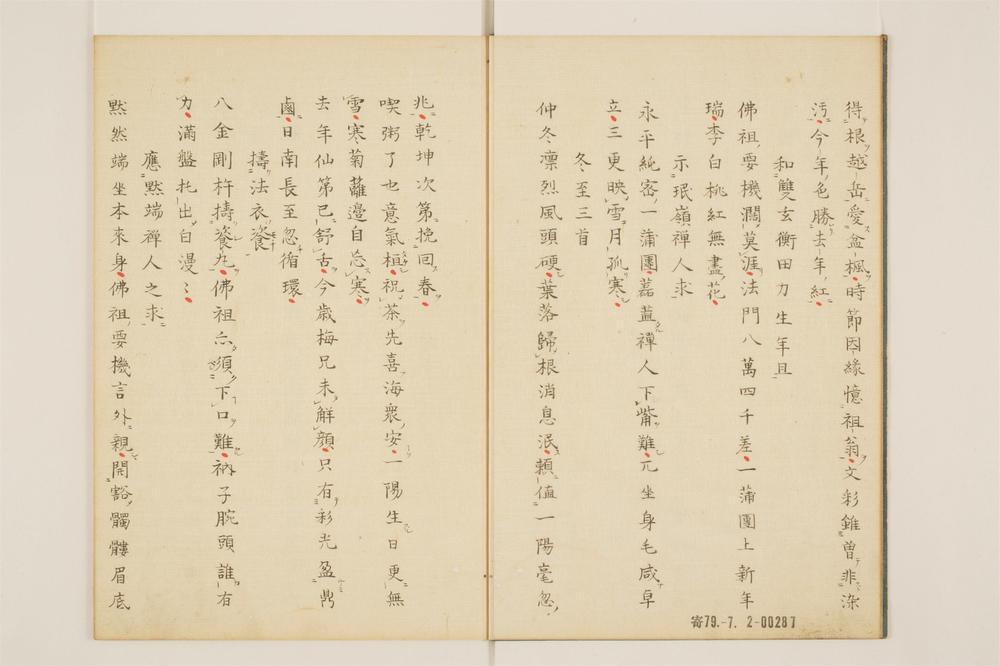 得根越岳愛盆楓時節因緣憶祖翁文彩雖曾非染
汚今年色勝去年紅
和雙玄衡田力生年且
佛祖要機濶莫涯法門八萬四千差一蒲團上新年
瑞李白桃紅無盡花
示珉嶺禪人求
永平純密一蒲團 禪人下觜難兀坐身毛咸卓
立三更映雪月孤寒
冬至三首
仲冬凛烈風頭硬葉落歸根消息泯頼值一陽毫忽
兆乾坤次第挽回春
喫粥了也意氣 祝茶先喜海衆安一陽生日更無
雪寒菊蘺邊自忘寒
去年仙第已舒舌今歳梅兄未觧顔只有彩光盈
鹵日南長至忽循環
擣法衣瓷
八金剛杵擣瓷丸佛祖亦須下口難衲子腕頭誰有
力滿盤托出白漫〻
應默端禪人之求
默然端坐本來身佛祖要機言外親開豁髑髏眉底
寄79.-7. 2-00287